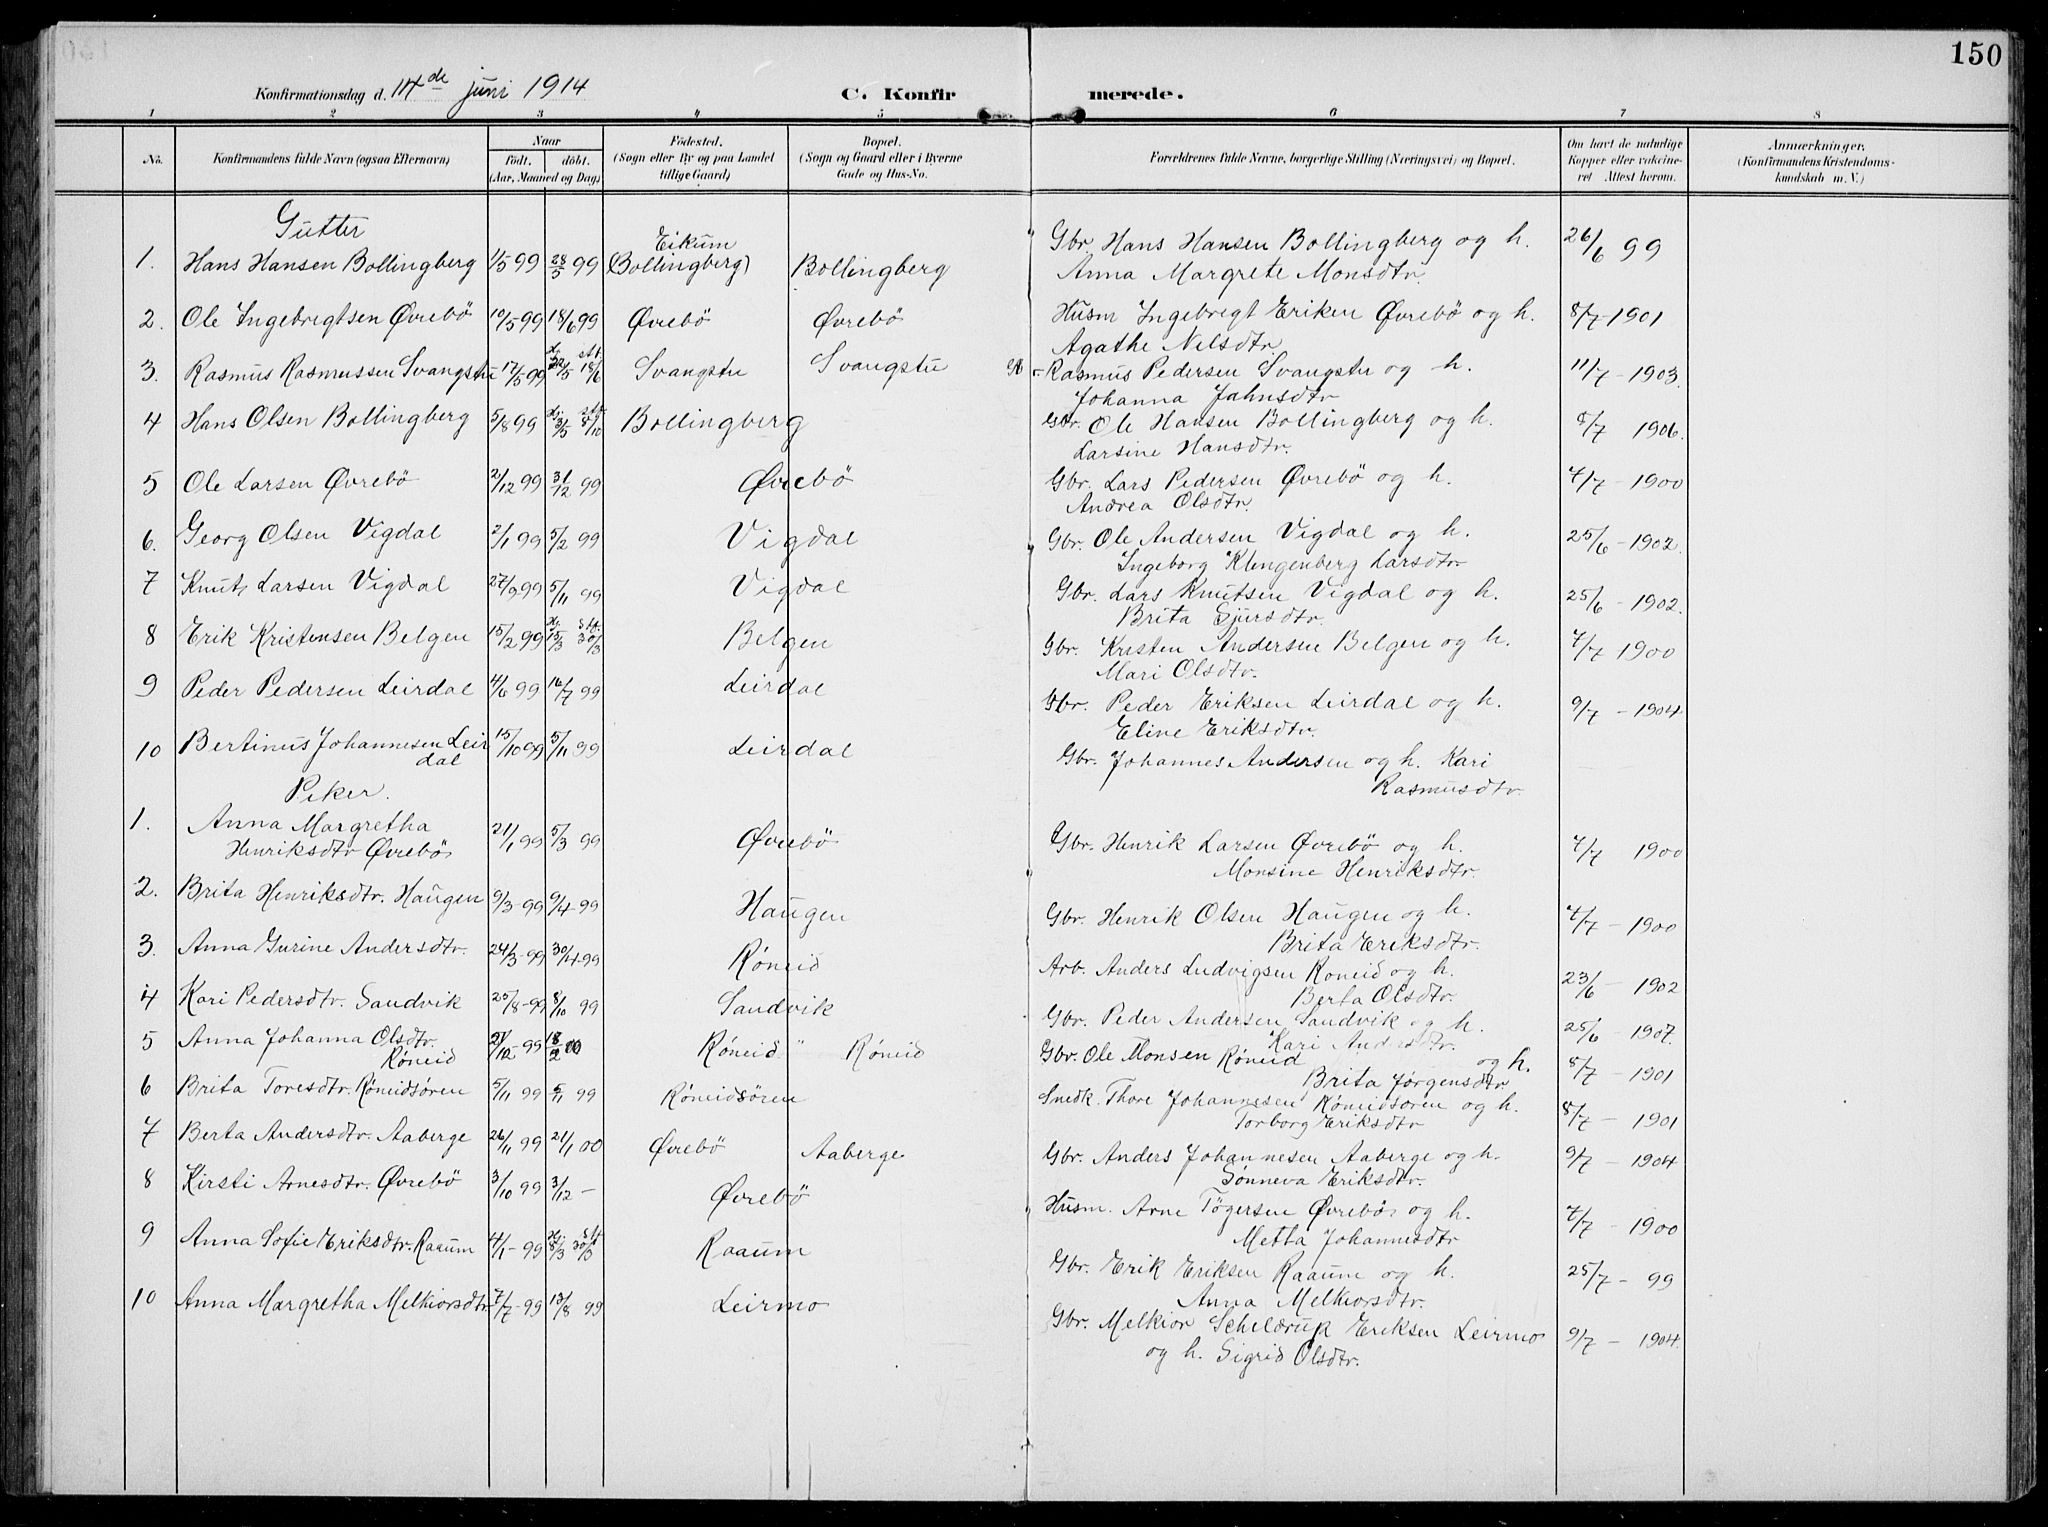 150
Konfirmationsdag d. 14de juni 1914
C. Konfirmerede.
1 2 3 4 5 6 7 8
No. Konfirmandens fulde Navn (ogsaa Efternavn) Naar født. døbt. (Aar, Maaned og Dag) Fødested. (Sogn eller By og paa Landet tillige Gaard) Bopæl. (Sogn og Gaard eller i Byerne Gade og Hus-No. Forældrenes fulde Navne, borgerlige Stilling (Næringsvei) og Bopæl. Om havt de naturlige Kopper eller vaccineret Attest herom. Anmærkninger. (Konfirmandens Kristendomskundskab m. V.)
Gutter
1. Hans Hansen Bollingberg 1/5 99 28/5 99 Eikum (Bollingberg) Bollingberg Gbr. Hans Hansen Bollingberg og h. 26/6 99
Anna Margrete Monsdtr.
2. Ole Ingebrigtsen Øvrebö 10/5 99 18/6 99 Øvrebö Øvrebö Husm Ingebregt Eriken Øvrebö og h. 8/7 1901
Agathe Nelsdtr.
3. Rasmus Rasmussen Svangstu 17/5 99 hj. 22/5 st. 18/6 Svangstu Svangstu Rasmus Pedersen Svangstu og h. 11/7 - 1903.
Johanna Jahnsdtr
4 Hans Olsen Bollingberg 5/8 99 hj. st. 8/10 Bollingberg Gbr. Ole Hansen Bollingberg og h. 8/7 1906.
Larsine Hansdtr.
5 Ole Larsen Øvrebö 2/12 99 31/12 99 Øvrebö Gbr. Lars Pedersen Øvrebö og h. 7/7 - 1900
Andrea Olsdtr.
6. Georg Olsen Vigdal 2/1 99 5/2 99 Vigdal Gbr. Ole Andersen Vigdal og h. 25/6 - 1902.
Ingeborg Klengenberg Larsdtr.
7 Knut Larsen Vigdal 27/9 99 5/11 99 Vigdal Gbr. Lars Knutsen Vigdal og h. 25/6 - 1902.
Brita Sjursdtr.
8 Erik Kristensen Belgen 15/2 99 hj. 15/3 st. 30/3 Belgen Gbr. Kristen Andersen Belgen og h. 7/7 1900
Mari Olsdtr.
9 Peder Pedersen Leirdal 4/6 99 16/7 99 Leirdal Gbr. Peder Eriksen Leirdal og h. 9/7 - 1904
Eline Eriksdtr.
10 Bertinus Johannesen Leirdal 15/10 99 5/11 99 Leirdal Gbr. Johannes Andersen og h. Kari
Rasmusdtr.
Piker.
1. Anna Margretha
Henriksdtr Øvrebö 21/1 99 5/3 99 Øvrebö Gbr. Henrik Larsen Øvrebö og h. 7/7 1900
Monsine Henriksdtr.
2. Brita Henriksdtr. Haugen 9/3 - 99 9/4 - 99 Haugen Gbr. Henrik Olsen Haugen og h. 7/7 - 1900
Brita Eriksdtr.
3. Anna Gurine Andersdtr. 24/3 - 99 30/4 - 99 Röneid Arb. Anders Ludvigsen Roneid og h. 23/6 - 1902
Berta Olsdtr.
4 Kari Pedersdtr. Sandvik 25/8 - 99 8/10 99 Sandvik Gbr. Peder Andersen Sandvik og h. 25/6 - 1907.
Kari Andersdtr.
5 Anna Johanna Olsdtr.
Röneid 21/12 - 99 18/2 00 Röneid " Röneid Gbr. Ole Monsen Röneid og h. 8/7 - 1901
Brita Jørgensdtr
6 Brita Toresdtr. Röneidsören 5/11 99 5/11 99 Röneidsören Snedk. Thore Johannesen Röneidsoren og h. 8/7 - 1901
Torborg Eriksdtr
7 Berta Andersdtr. Aaberge 26/11 99 21/1 00 Øvrebö Aaberge Gbr. Anders Johannesen Aaberge og h. 9/7 - 1904
Sönneva Eriksdtr.
8 Kirsti Arnesdtr. Øvrebö 3/10 99 3/12 - Øvrebö Husm. Arne Tögersen Øvrebö og h. 7/7 - 1900
Metta Johannesdtr
9 Anna Sofie Eriksdtr. Raaum 4/1 - 99 hj. 8/3 st. 30/3 Raaum Gbr. Erik Eriksen Raaum og h. 25/7 - 99
Anna Melkiorsdtr.
10 Anna Margretha Melkiorsdtr 7/7 - 99 13/8 99 Leirmo Gbr. Melkior Scheldrup Eriksen Leirmo 9/7 - 1904.
og h. Sigrid Olsdtr.